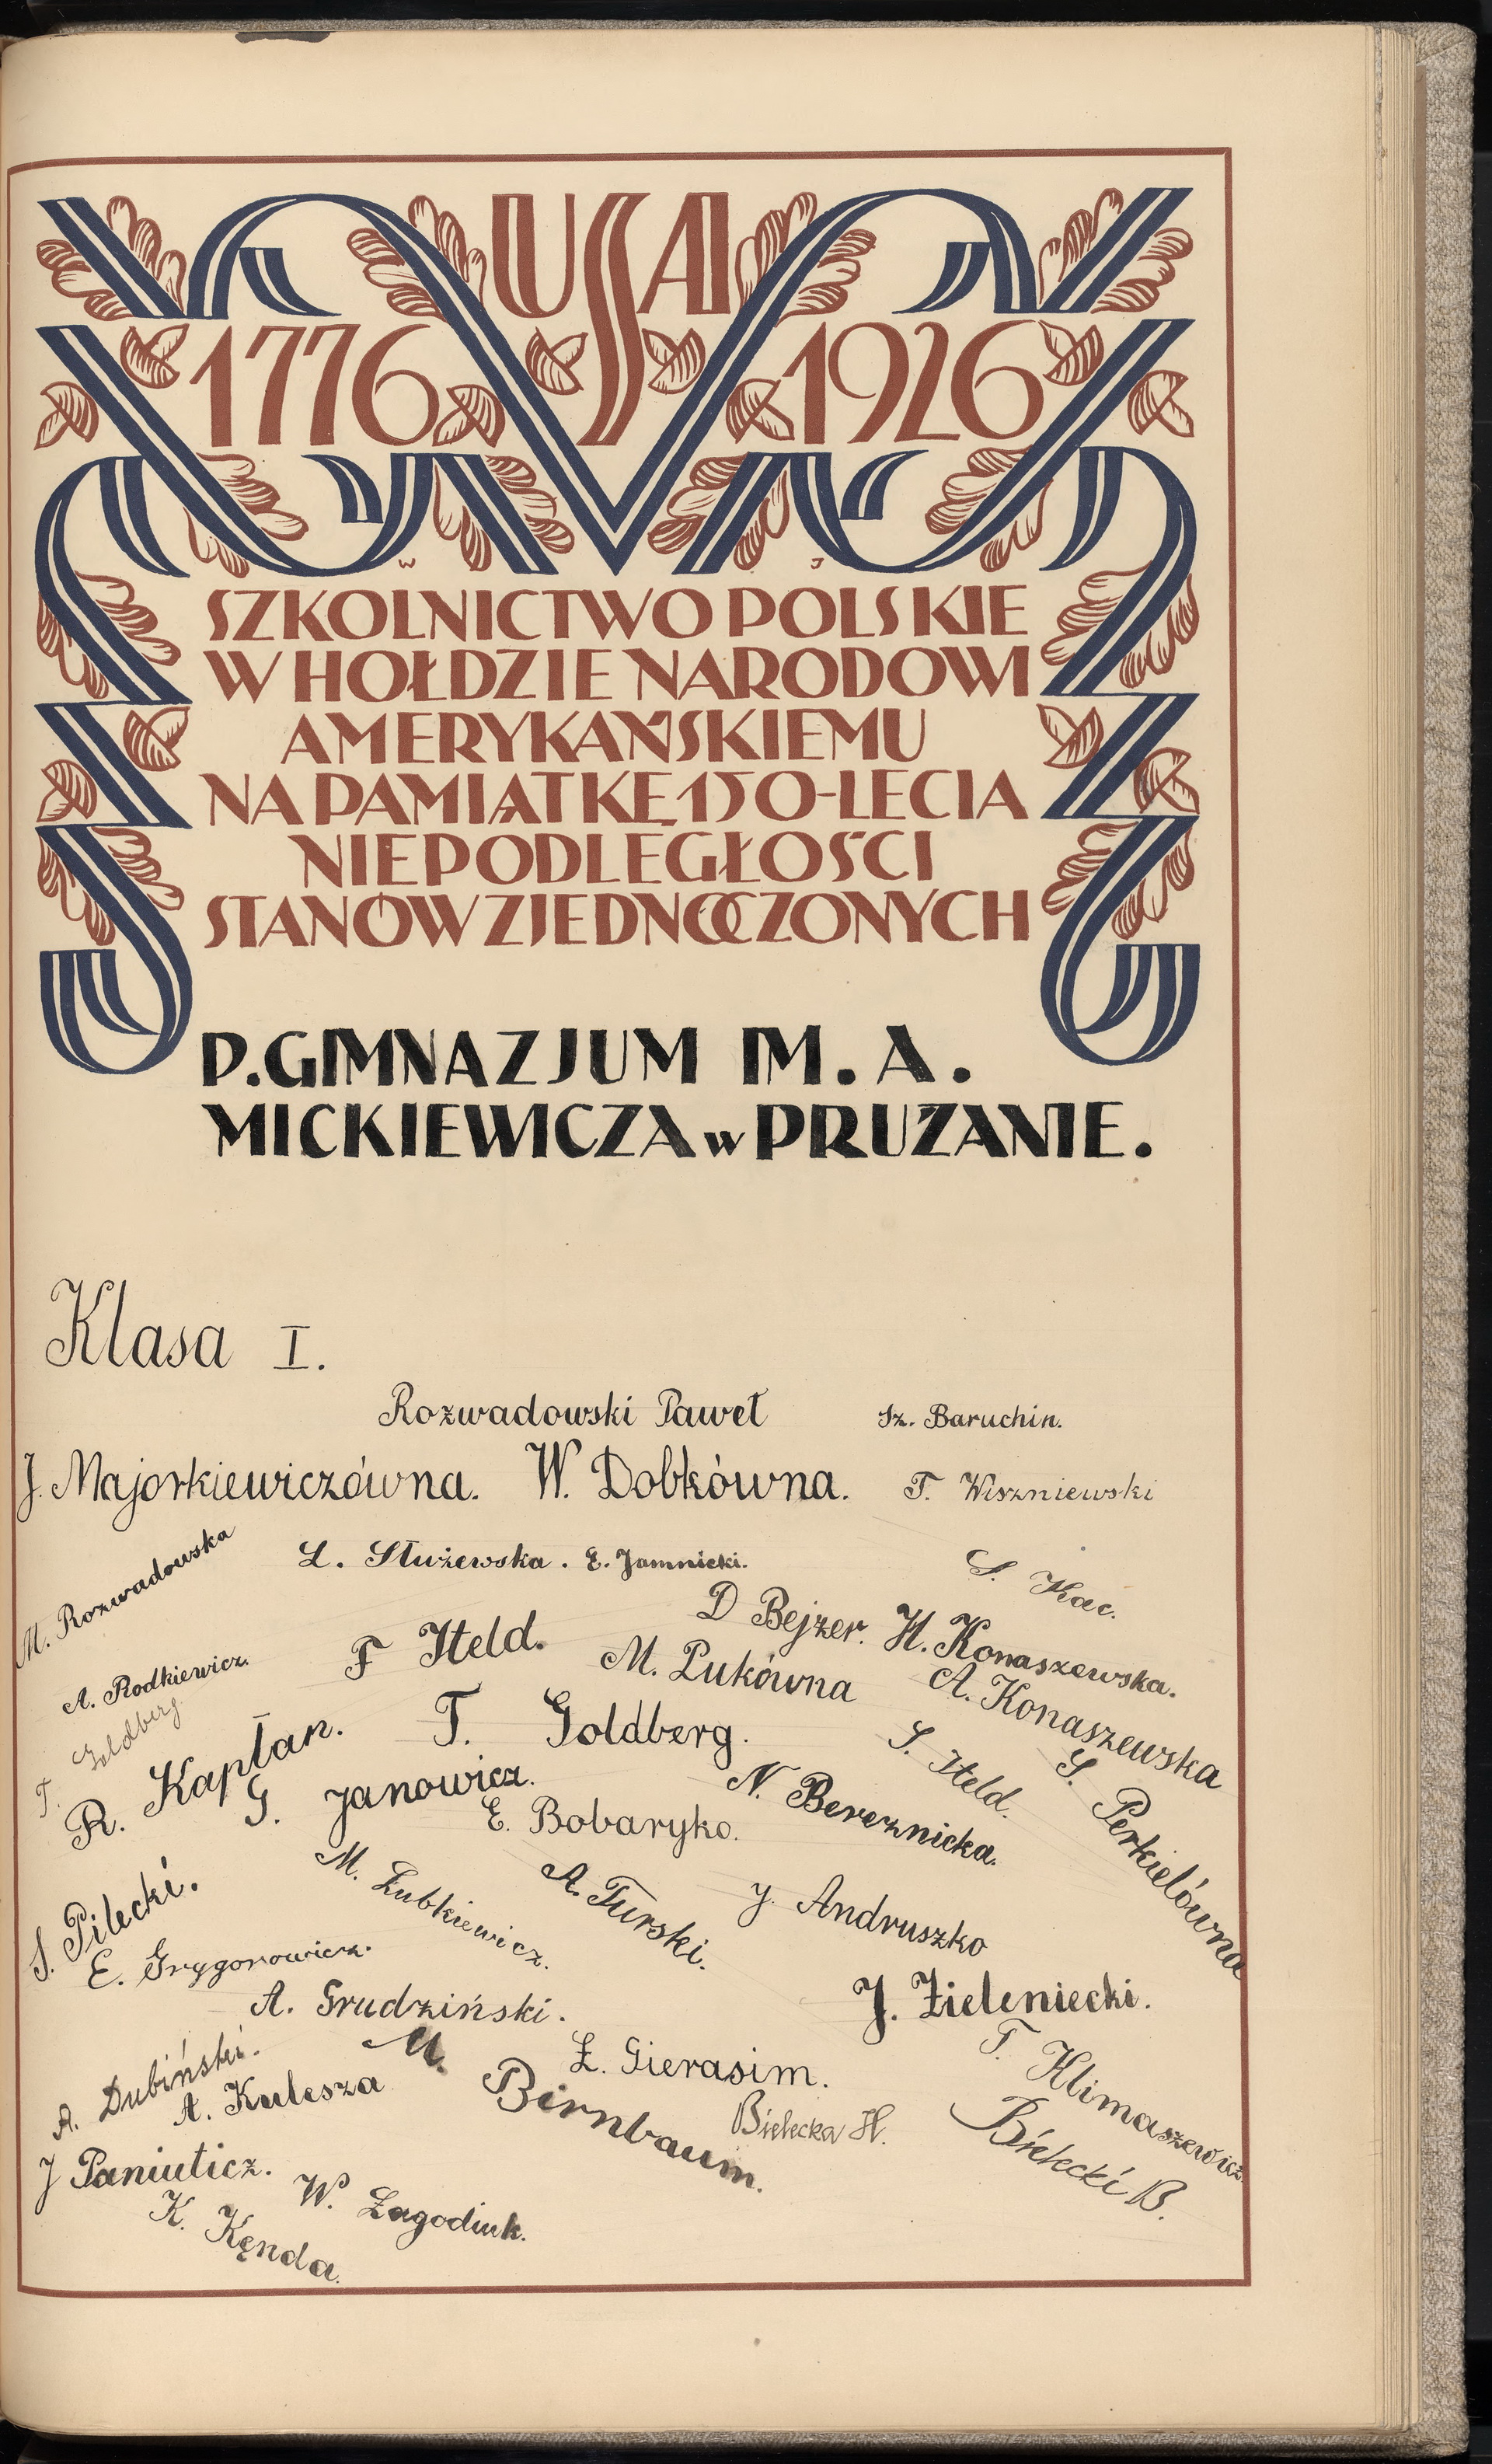 USA
1776 1926
W J
SZKOLNICTWO POLSKIE
W HOŁDZIE NARODOWI
AMERYKAŃSKIEMU
NA PAMIĄTKĘ 150-LECIA
NIEPODLEGŁOŚCI
STANÓW ZJEDNOCZONYCH
P. GIMNAZJUM IM. A.
MICKIEWICZA w PRUŻANIE.
Klasa I.
Rozwadowski Paweł Sz. Baruchin.
J. Majorkiewiczówna. W. Dobkówna. T. Wiszniewski
M. Rozwadowska
L. Służewska. E. Jamnicki.
S. Kac.
D Bejzer. H. Konaszewska.
F Held. M. Pukówna
A. Konaszewska
A. Rodkiewicz.
T. Goldberg
T. Goldberg.
R. Kapłan.
S. Held.
S. Perkielówna
G. Janowicz.
N. Bereznicka.
E. Bobaryko.
M. Zubkiewicz.
A. Turski.
J. Andruszko
S. Pilecki.
E. Grygorowicz.
A. Grudziński.
J. Zieleniecki.
T. Klimaszewicz
A. Dubiński.
M. Birnbaum.
Ł. Gierasim.
A. Kulesza
Bielecka H.
Bielecki B.
J Paniuticz.
W. Łagodiuk.
K. Kęnda.